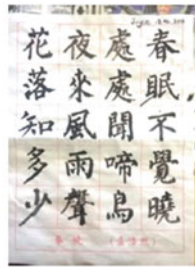 春眠不覺曉
處處聞啼鳥
夜來風雨聲
花落知多少
春曉（孟浩然）